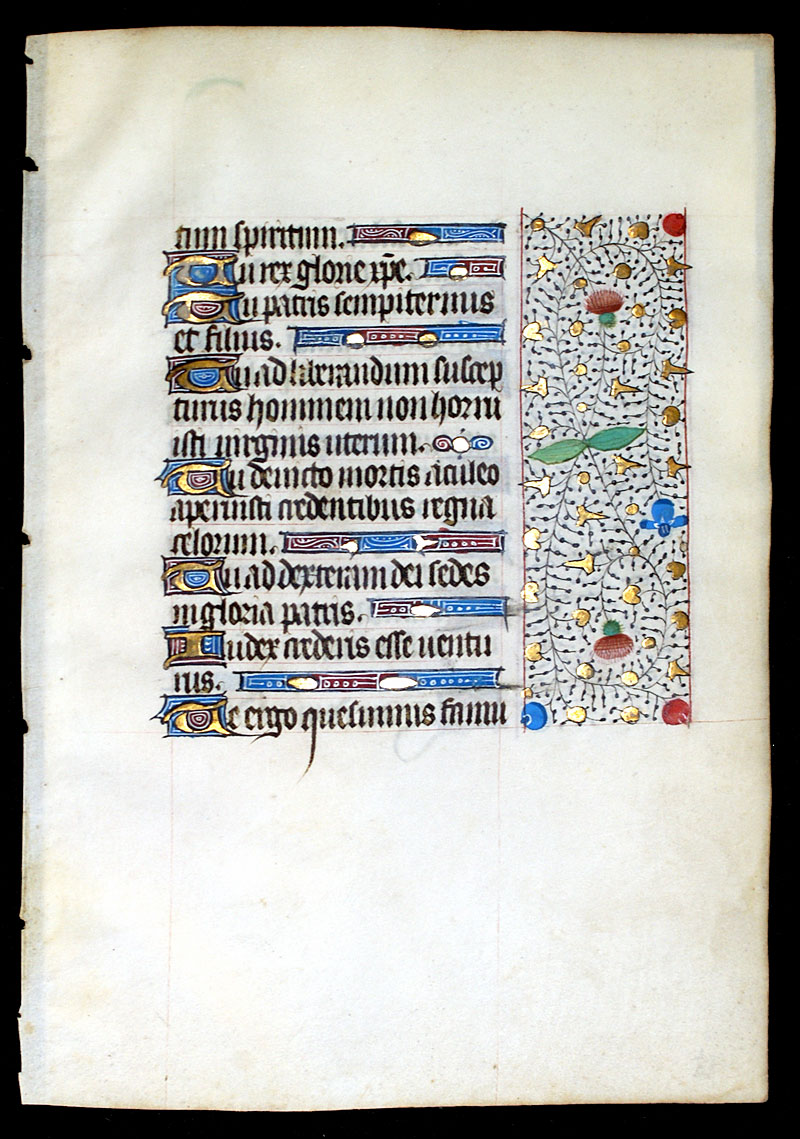 tum spiritum.
Tu rex glorie xp̄e.
Tu patris sempiternus
et filius.
Tu ad liberandum suscep
turus hominem non horru
isti virginis uterum.
Tu devicto mortis aculeo
aperuisti credentibus regna
celorum.
Tu ad dexteram dei sedes
in gloria patris.
Iudex crederis esse uentu
rus.
Te ergo quesumus famu